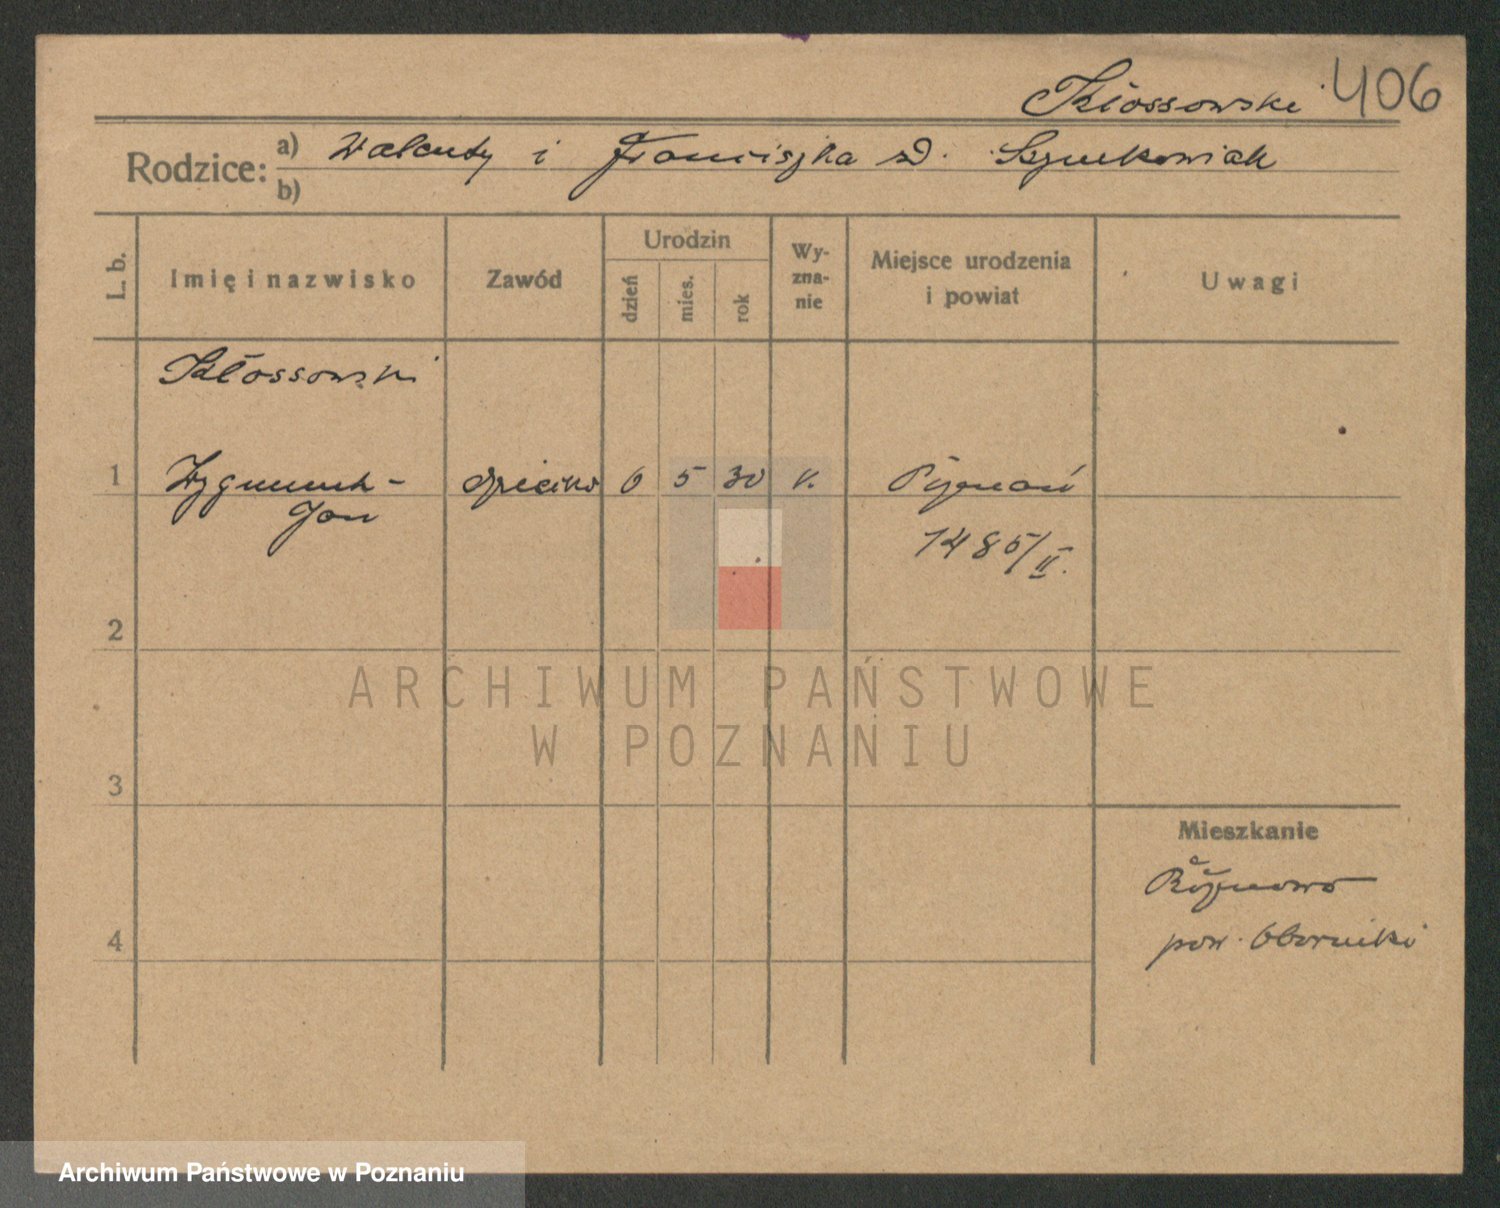 Kłossowski 406
Rodzice: a) Walenty i Franciszka z d. Szymkowiak
b)
L. b.
Imię i nazwisko
Zawód
Urodzin
dzień
mies.
rok
Wy-
zna-
nie
Miejsce urodzenia
i powiat
Uwagi
Kłossowski
1 Zygmunt- dziecko 6 5 30 k. Poznań
Jan
1485/II.
2
ARCHIWUM PAŃSTWOWE
W POZNANIU
3
Mieszkanie
Rożnowo
4 pow. Oborniki
Archiwum Państwowe w Poznaniu